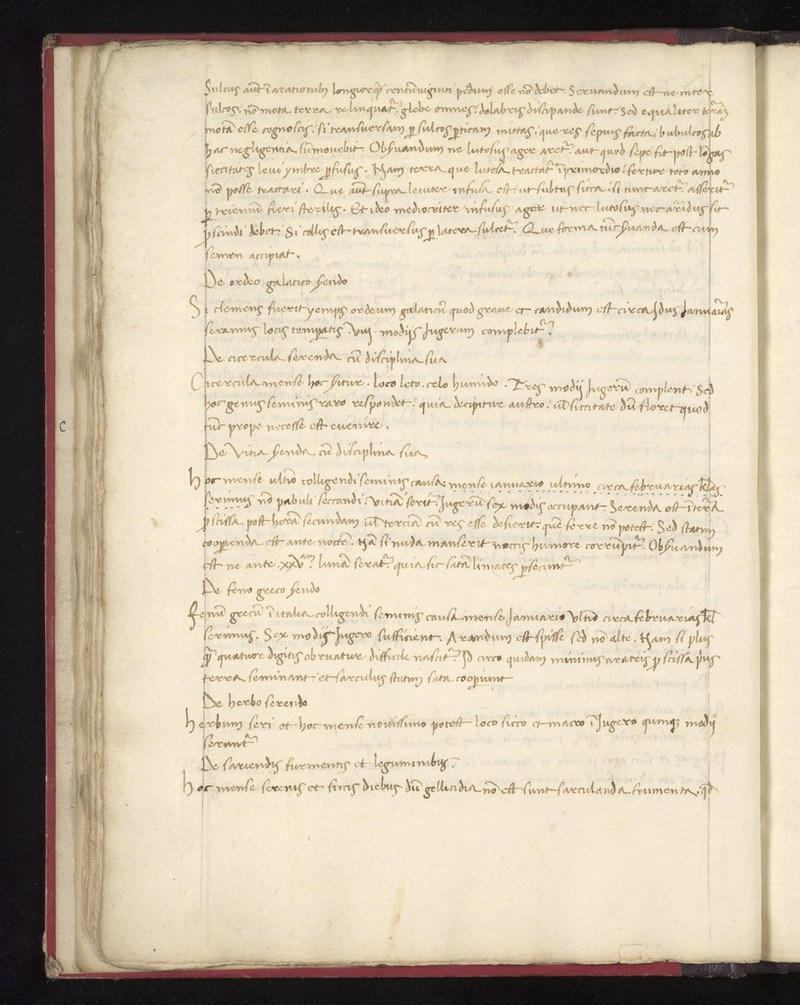 Sulcus aūt ī arationibꝫ longiorq̄ꝫ centūuiginti pedum esse nō debet. Seruandum est ne inter
sulcos. nō mota terra relinquat͛. glebe omnes. dolabris discipande sunt. Sed equaliter terrā
motā esse cognoscis. si transuersam ꝑ sulcos ꝑticam mittas. que res sepius facta bubulcos ab
hac negligentia sūmouebit. Obsͥuandum ne lutosus ager aret͛. aut quod sepe fit post longas
siccitates leui ymbre ꝑfusus. Nam terra que lutosa tractat͛ ī primordio. fertur toto anno
nō posse tractari. Que aūt supra leuiter infusa est. ut subtus sicca. si tunc aret͛. asserit͛
ꝑ trienniū fieri sterilis. Et ideo mediocriter infusus ager ut nec lutosus nec aridus sit
ꝓscindi debet. Si collis est transuersus ꝑ latera sulcet͛. Que forma tūc sͥuanda est cum
semen accipiat.
De ordeo galatico sͥendo
Si clemens fuerit yemps ordeum galaticū quod graue et candidum est circa Idus Januarias
seramus locis temperatis. Viij. modijs Jugerum complebit͛.
De cicercula serenda cū disciplina sua
Cicercula mense hoc sͥitur. loco leto. celo humido. Tres modij Jugerū complent. Sed
hoc genus seminis raro respondet. quia decipitur austro. uł siccitate dū floret quod
tūc prope necesse est euenire.
De Vitia sͥenda cū disciplina sua
Hoc mense ultīo colligendi seminis causa mense ianuario ultimo circa februarias kłas
serimus nō pabuli seccandi. Vitiā serit͛. Jugerū sex modis occupant. Serenda est ī terrā
ꝓscissa. post horā secundam uł terciā cū res esse desierit. quē ferre nō potest. Sed statim
cooperienda est ante noctē. Nā si nuda manserit noctis humore corrūpit͛. Obsͥuandum
est ne ante .xxv. lunā serat͛. quia sic satā limaces ꝑsecūnt͛
De feno greco sͥendo
Fenū grecū ī italia colligendi seminis causa mense Januario Vltīo circa februarias kł
serimus. Sex modij Jugero sufficient. Arandum est spisse sed nō alte. Nam si plus
q̄ꝫ quatuor digitis obruatur difficile nascit͛. Id circo quidam minimis aratris ꝓscissa pͥus
terra seminant. et sarculis statim sata cooperiunt
De herbo serendo
Herbum seri et hoc mense nouissimo potest loco sicco et macro ī Jugero quinqꝫ modij
serunt͛
De sariendis furmentis et leguminibus.
Hoc mense serenis et siccis diebus dū gellicidia nō est sunt sarculanda frumenta. qđ
c